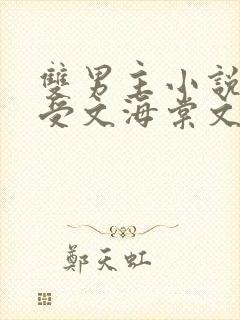 雙男主小說
受文海棠文
鄭天虹